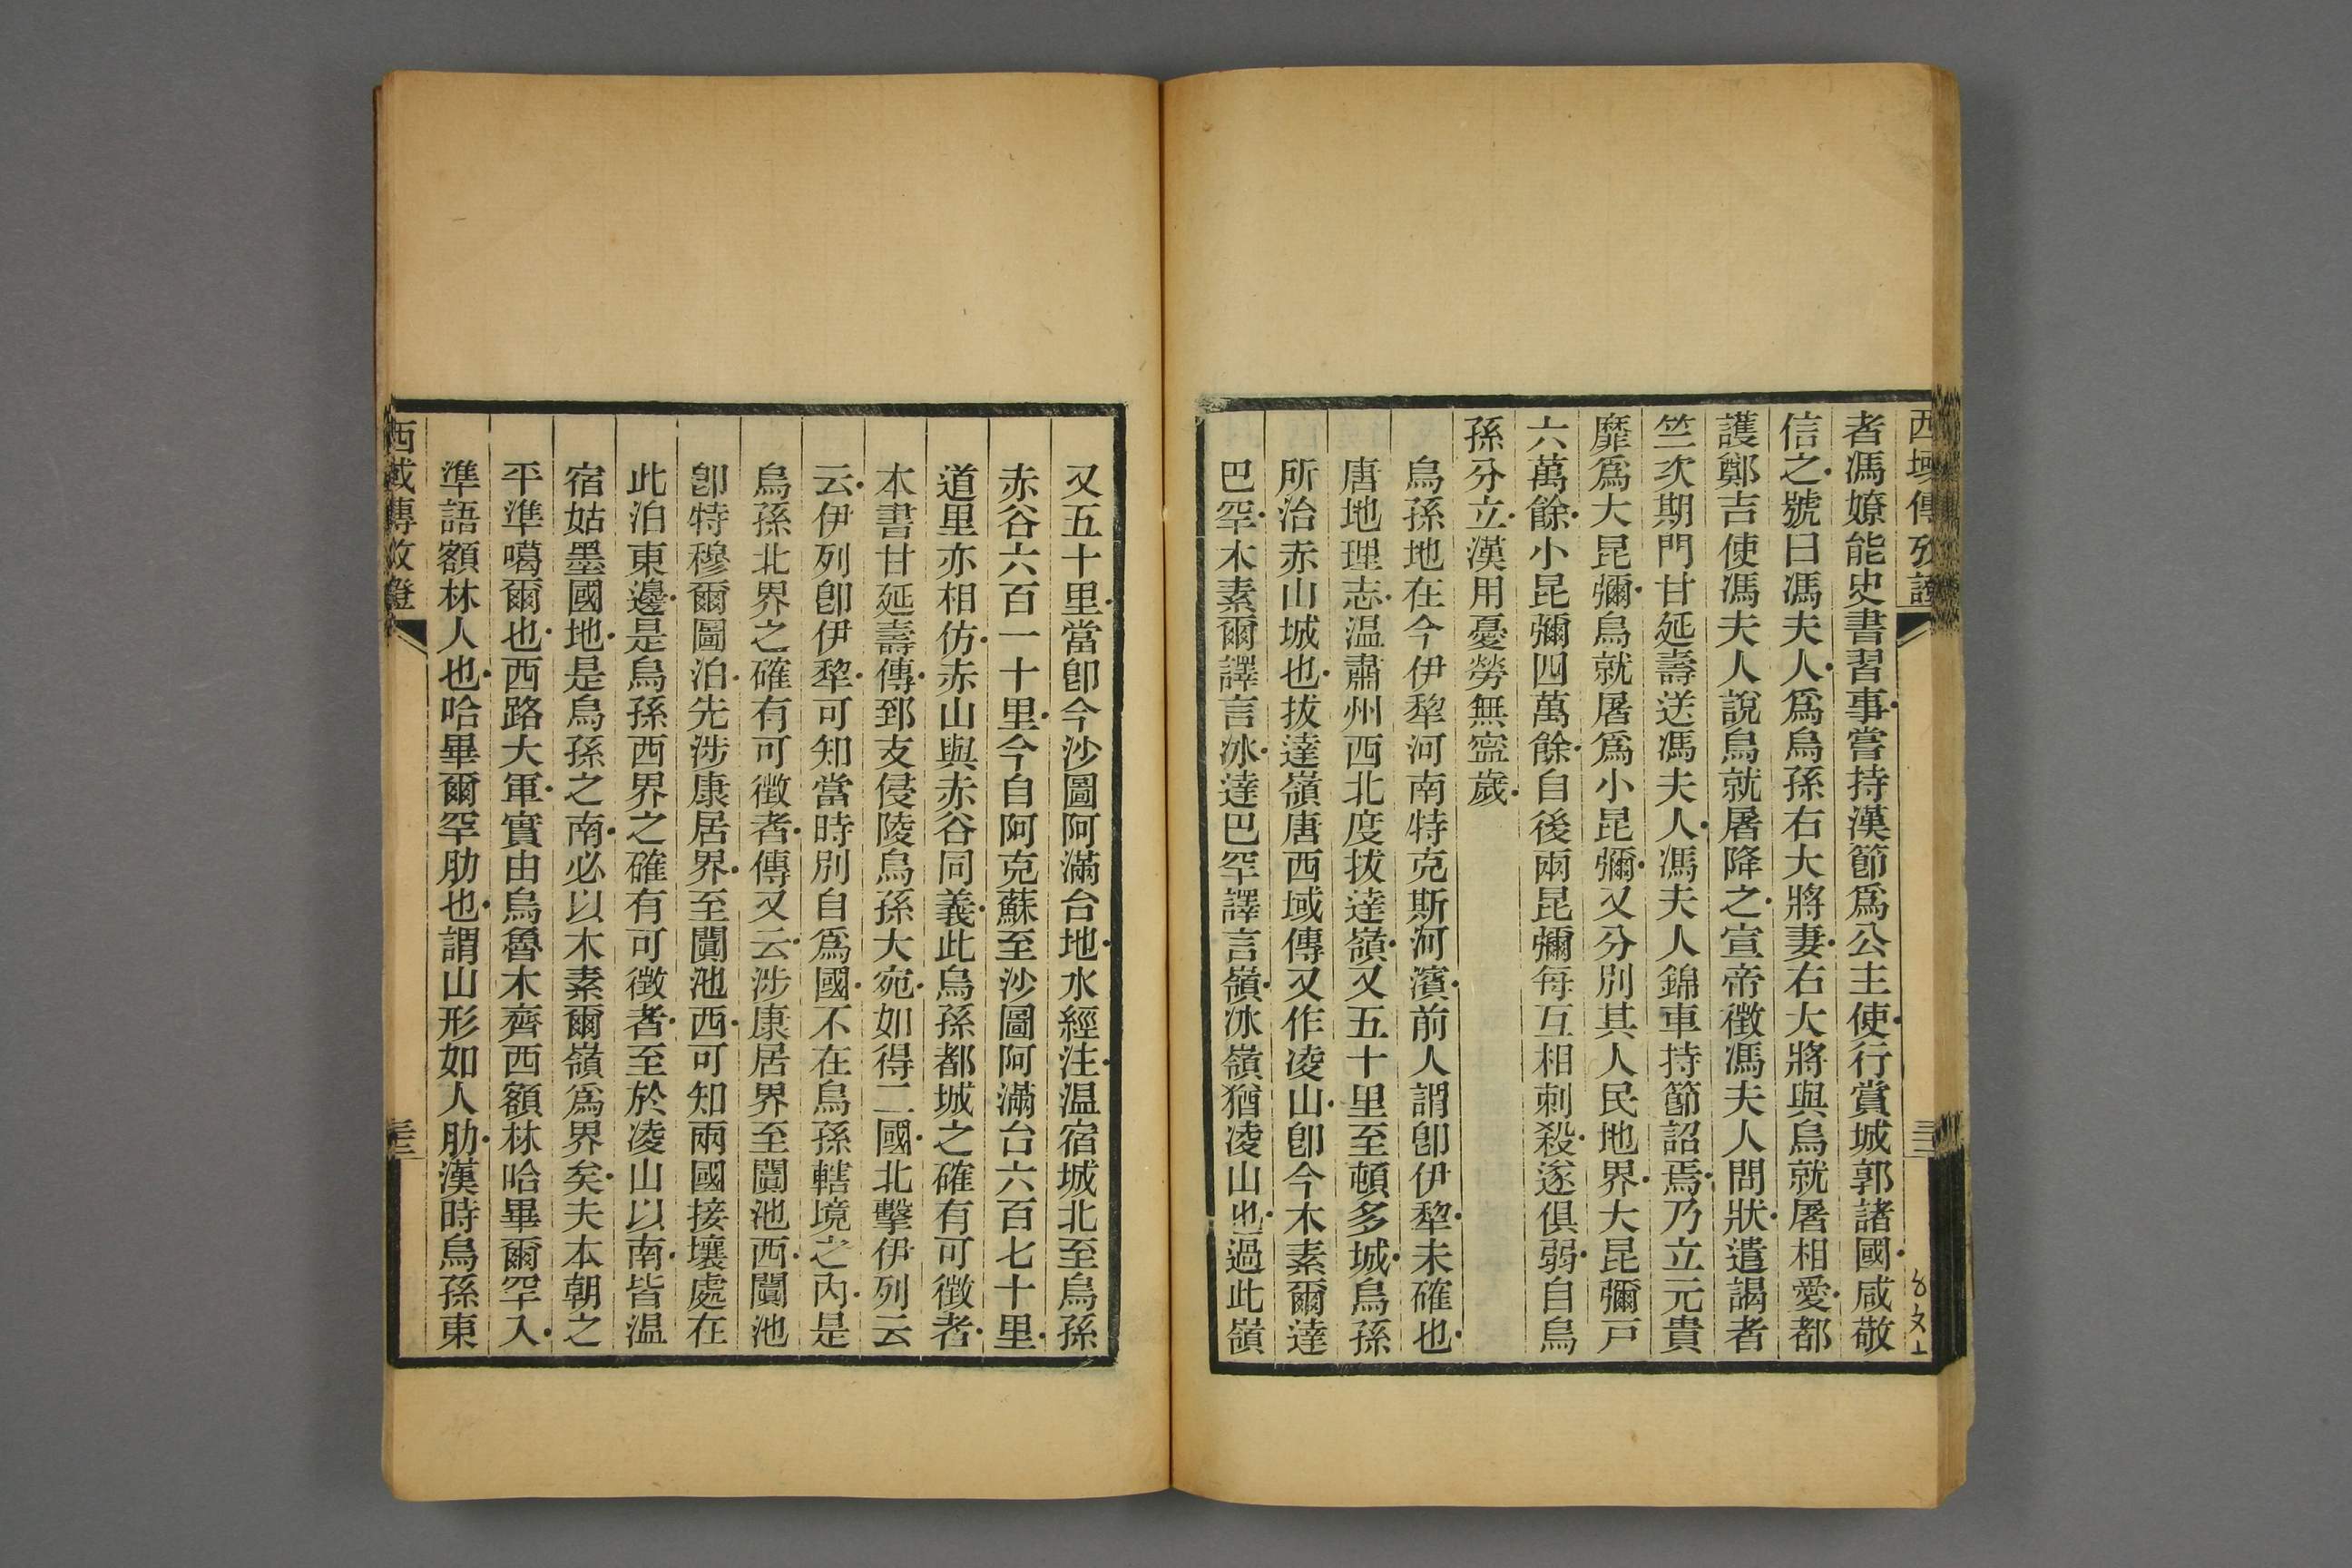 西域傳攷證
三十二
者馮嫽能史書習事嘗持漢節爲公主使行賞城郭諸國咸敬
信之號曰馮夫人爲烏孫右大將妻右大將與烏就屠相愛都
護鄭吉使馮夫人說烏就屠降之宣帝徵馮夫人問狀遣謁者
竺次期門甘延壽送馮夫人馮夫人錦車持節詔焉乃立元貴
靡爲大昆彌烏就屠爲小昆彌又分別其人民地界大昆彌戸
六萬餘小昆彌四萬餘自後兩昆彌每互相刺殺遂俱弱自烏
孫分立漢用憂勞無寍歲
烏孫地在今伊犂河南特克斯河濱前人謂卽伊犂未確也
唐地理志温肅州西北度拔達嶺又五十里至頓多城烏孫
所治赤山城也拔達嶺唐西域傳又作凌山卽今木素爾達
巴罕木素爾譯言冰達巴罕譯言嶺冰嶺猶凌山也過此嶺
又五十里當卽今沙圖阿滿台地水經注温宿城北至烏孫
赤谷六百一十里今自阿克蘇至沙圖阿滿台六百七十里
道里亦相仿赤山與赤谷同義此烏孫都城之確有可徵者
本書甘延壽傳郅支侵陵烏孫大宛如得二國北擊伊列云
云伊列卽伊犂可知當時別自爲國不在烏孫轄境之內是
烏孫北界之確有可徵者傳又云涉康居界至闐池西闐池
卽特穆爾圖泊先涉康居界至闐池西可知兩國接壤處在
此泊東邊是烏孫西界之確有可徵者至於凌山以南皆温
宿姑墨國地是烏孫之南必以木素爾嶺爲界矣夫本朝之
平準噶爾也西路大軍實由烏魯木齊西額林哈畢爾罕入
準語額林人也哈畢爾罕肋也謂山形如人肋漢時烏孫東
西域傳攷證